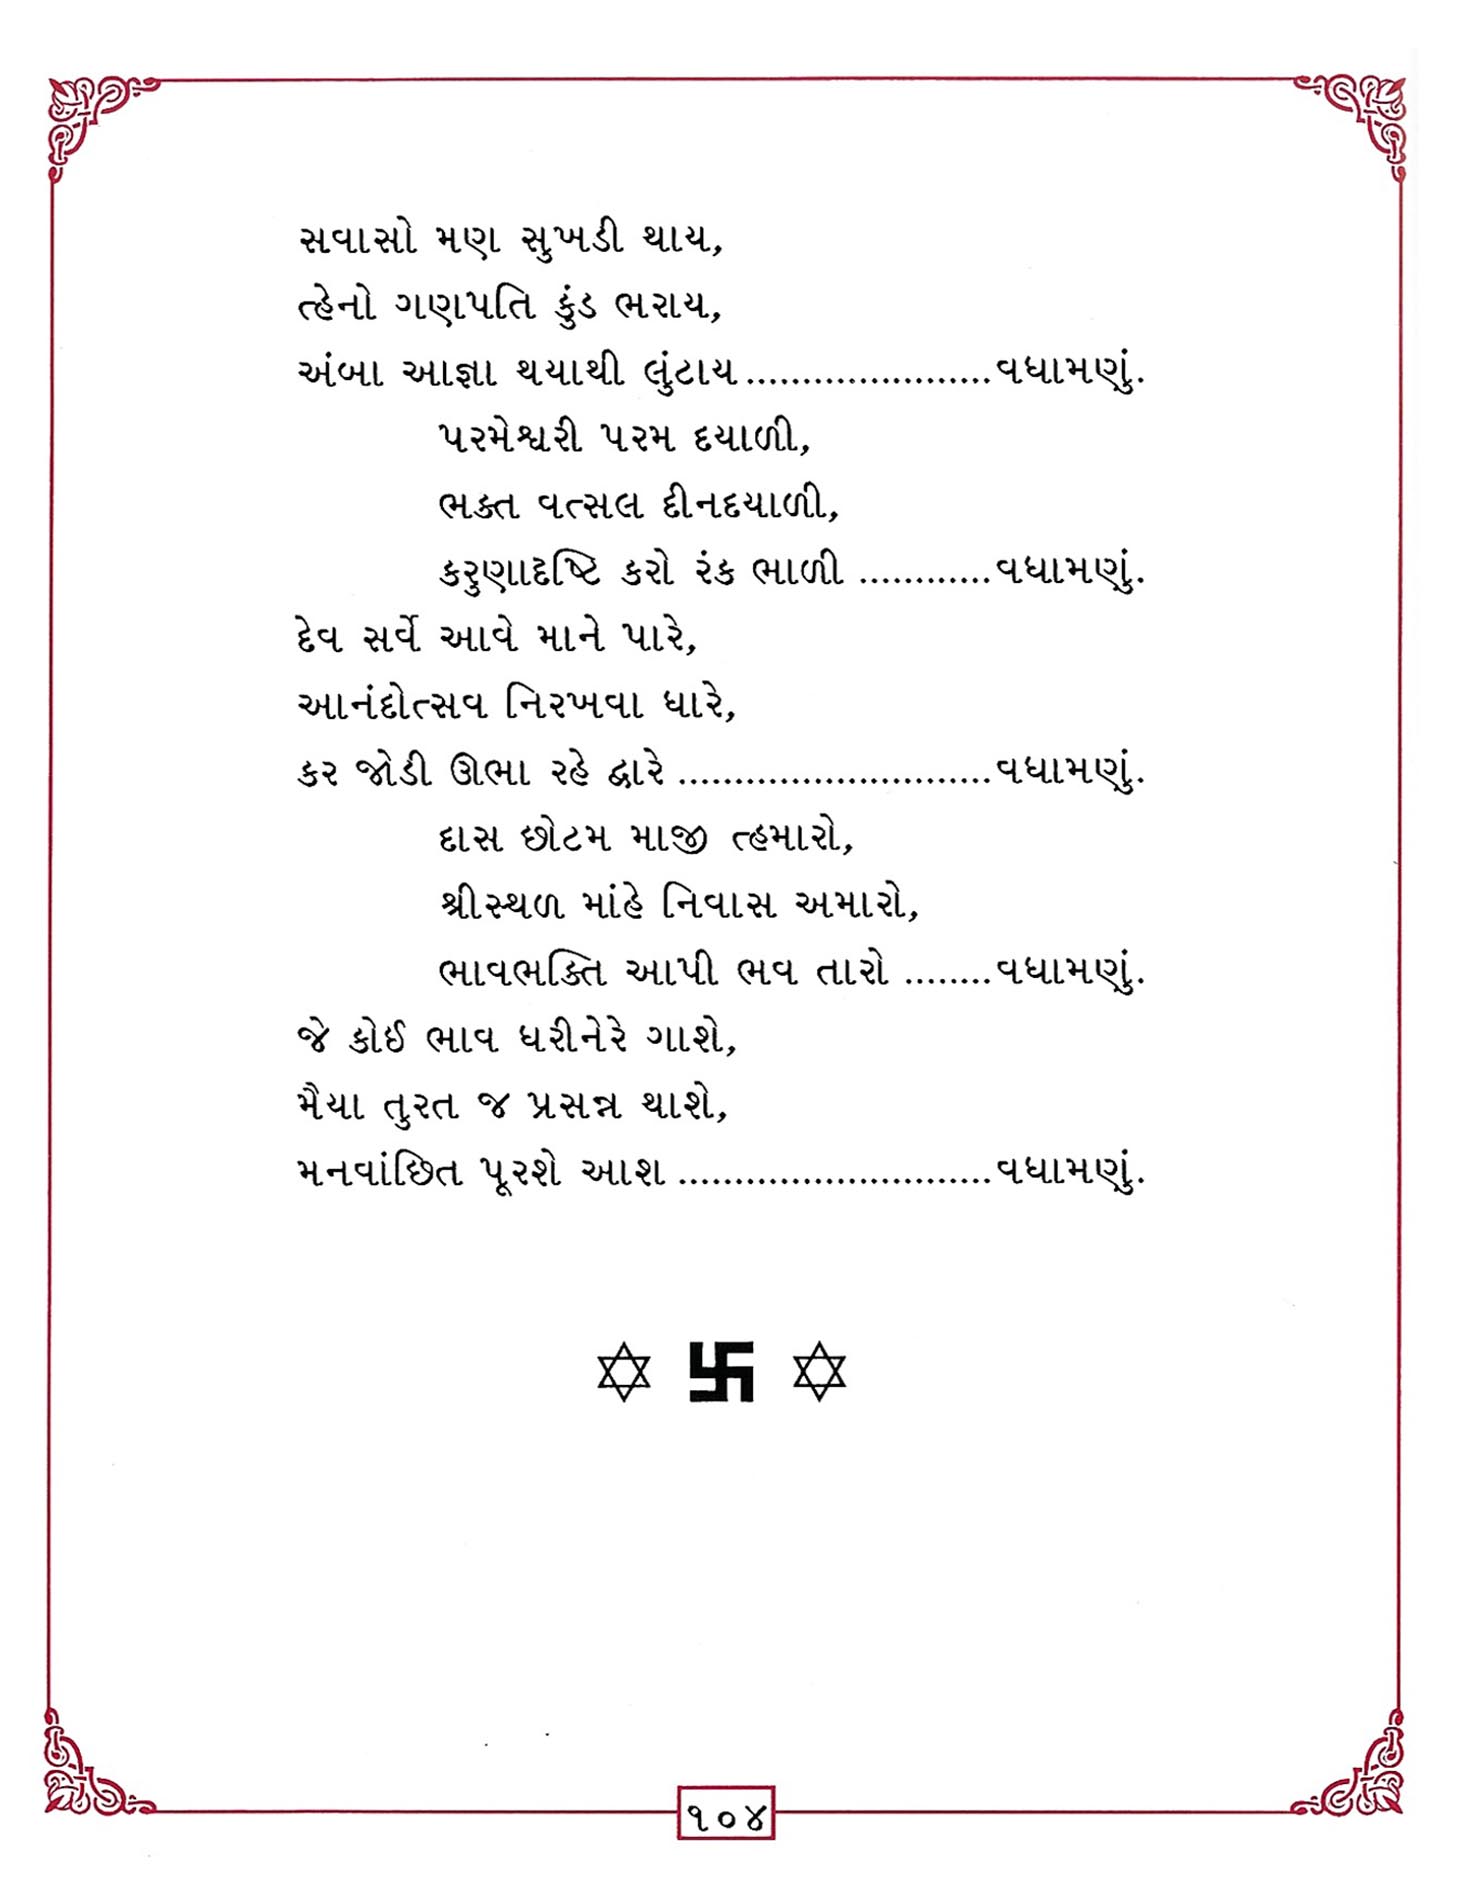 સવાસો મણ સુખડી થાય,
ત્હેનો ગણપતિ કુંડ ભરાય,
અંબા આજ્ઞા થયાથી લુંટાય......................વધામણું.
પરમેશ્વરી પરમ દયાળી,
ભક્ત વત્સલ દીનદયાળી,
કરુણાદૃષ્ટિ કરો રંક ભાળી ............વધામણું.
દેવ સર્વે આવે માને પારે,
આનંદોત્સવ નિરખવા ધારે,
કર જોડી ઊભા રહે દ્વારે ............................વધામણું.
દાસ છોટમ માજી ત્હમારો,
શ્રીસ્થળ માંહે નિવાસ અમારો,
ભાવભક્તિ આપી ભવ તારો ........વધામણું.
જે કોઈ ભાવ ધરીનેરે ગાશે,
મૈયા તુરત જ પ્રસન્ન થાશે,
મનવાંછિત પૂરશે આશ ............................વધામણું.
૧૦૪